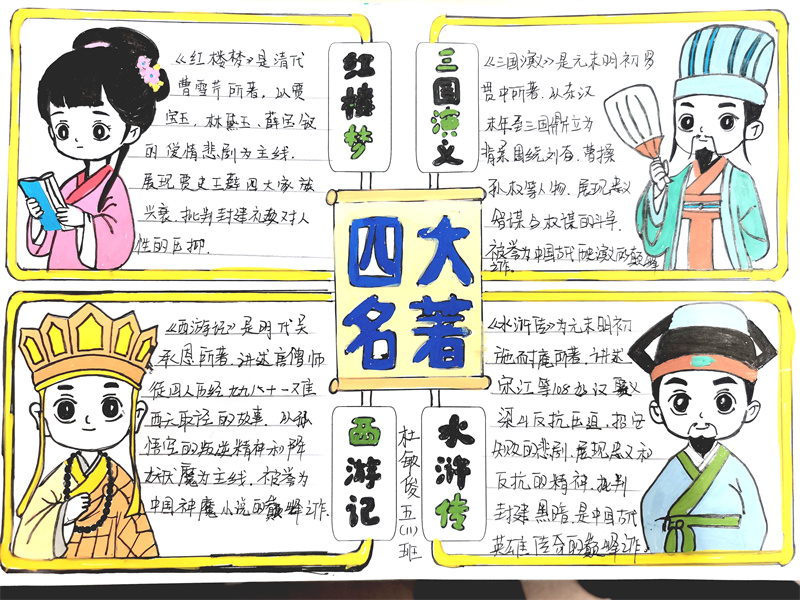 《红楼梦》是清代
曹雪芹所著，以贾
宝玉、林黛玉、薛宝钗
的爱情悲剧为主线，
展现贾史王薛四大家族
兴衰，批判封建礼教对人
性的压抑.
红楼梦
三国演义
《三国演义》是元末明初罗
贯中所著，以东汉
末年至三国鼎立为
背景围绕刘备、曹操
孙权等人物，展现忠义
智谋与权谋的斗争，
被誉为中国古代历史演义的巅峰
之作.
四大
名著
《西游记》是明代吴
承恩所著，讲述唐僧师
徒四人历经九九八十一难
西天取经的故事，以孙
悟空的叛逆精神和降
妖伏魔为主线，被誉为
中国神魔小说的巅峰之作.
西游记
杜敏俊五(11)班
水浒传
《水浒传》为元末明初
施耐庵所著，讲述
宋江等108好汉聚义
梁山反抗压迫，招安
失败的悲剧，展现忠义和
反抗的精神，批判
封建黑暗，是中国古代
英雄传奇的巅峰之作.